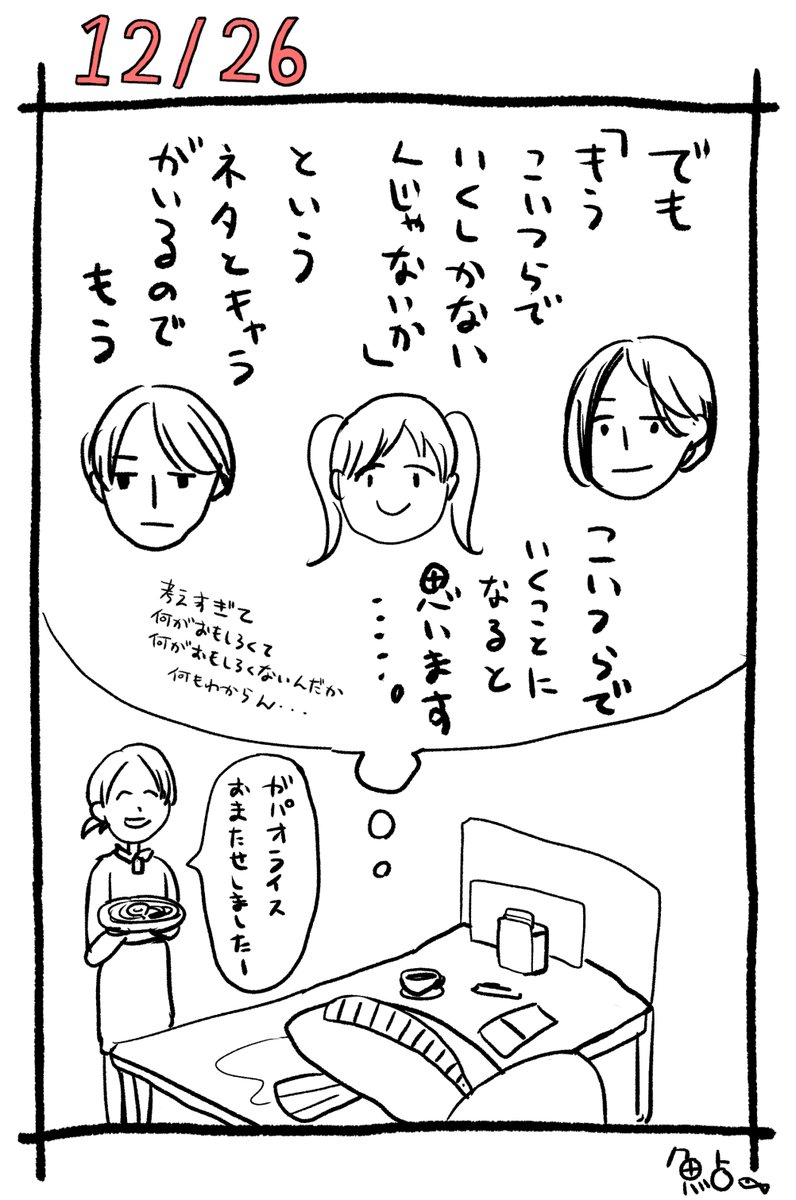 12/26
でも
「もう
こいつらで
いくしかない
んじゃないか」
という
ネタとキャラ
がいるので
もう
こいつらで
いくっことに
なると
思います
・・・・。
考えすぎて
何がおもしろくて
何がおもしろくないんだか
何もわからん...
ガパオライス
おまたせしましたー
魚占